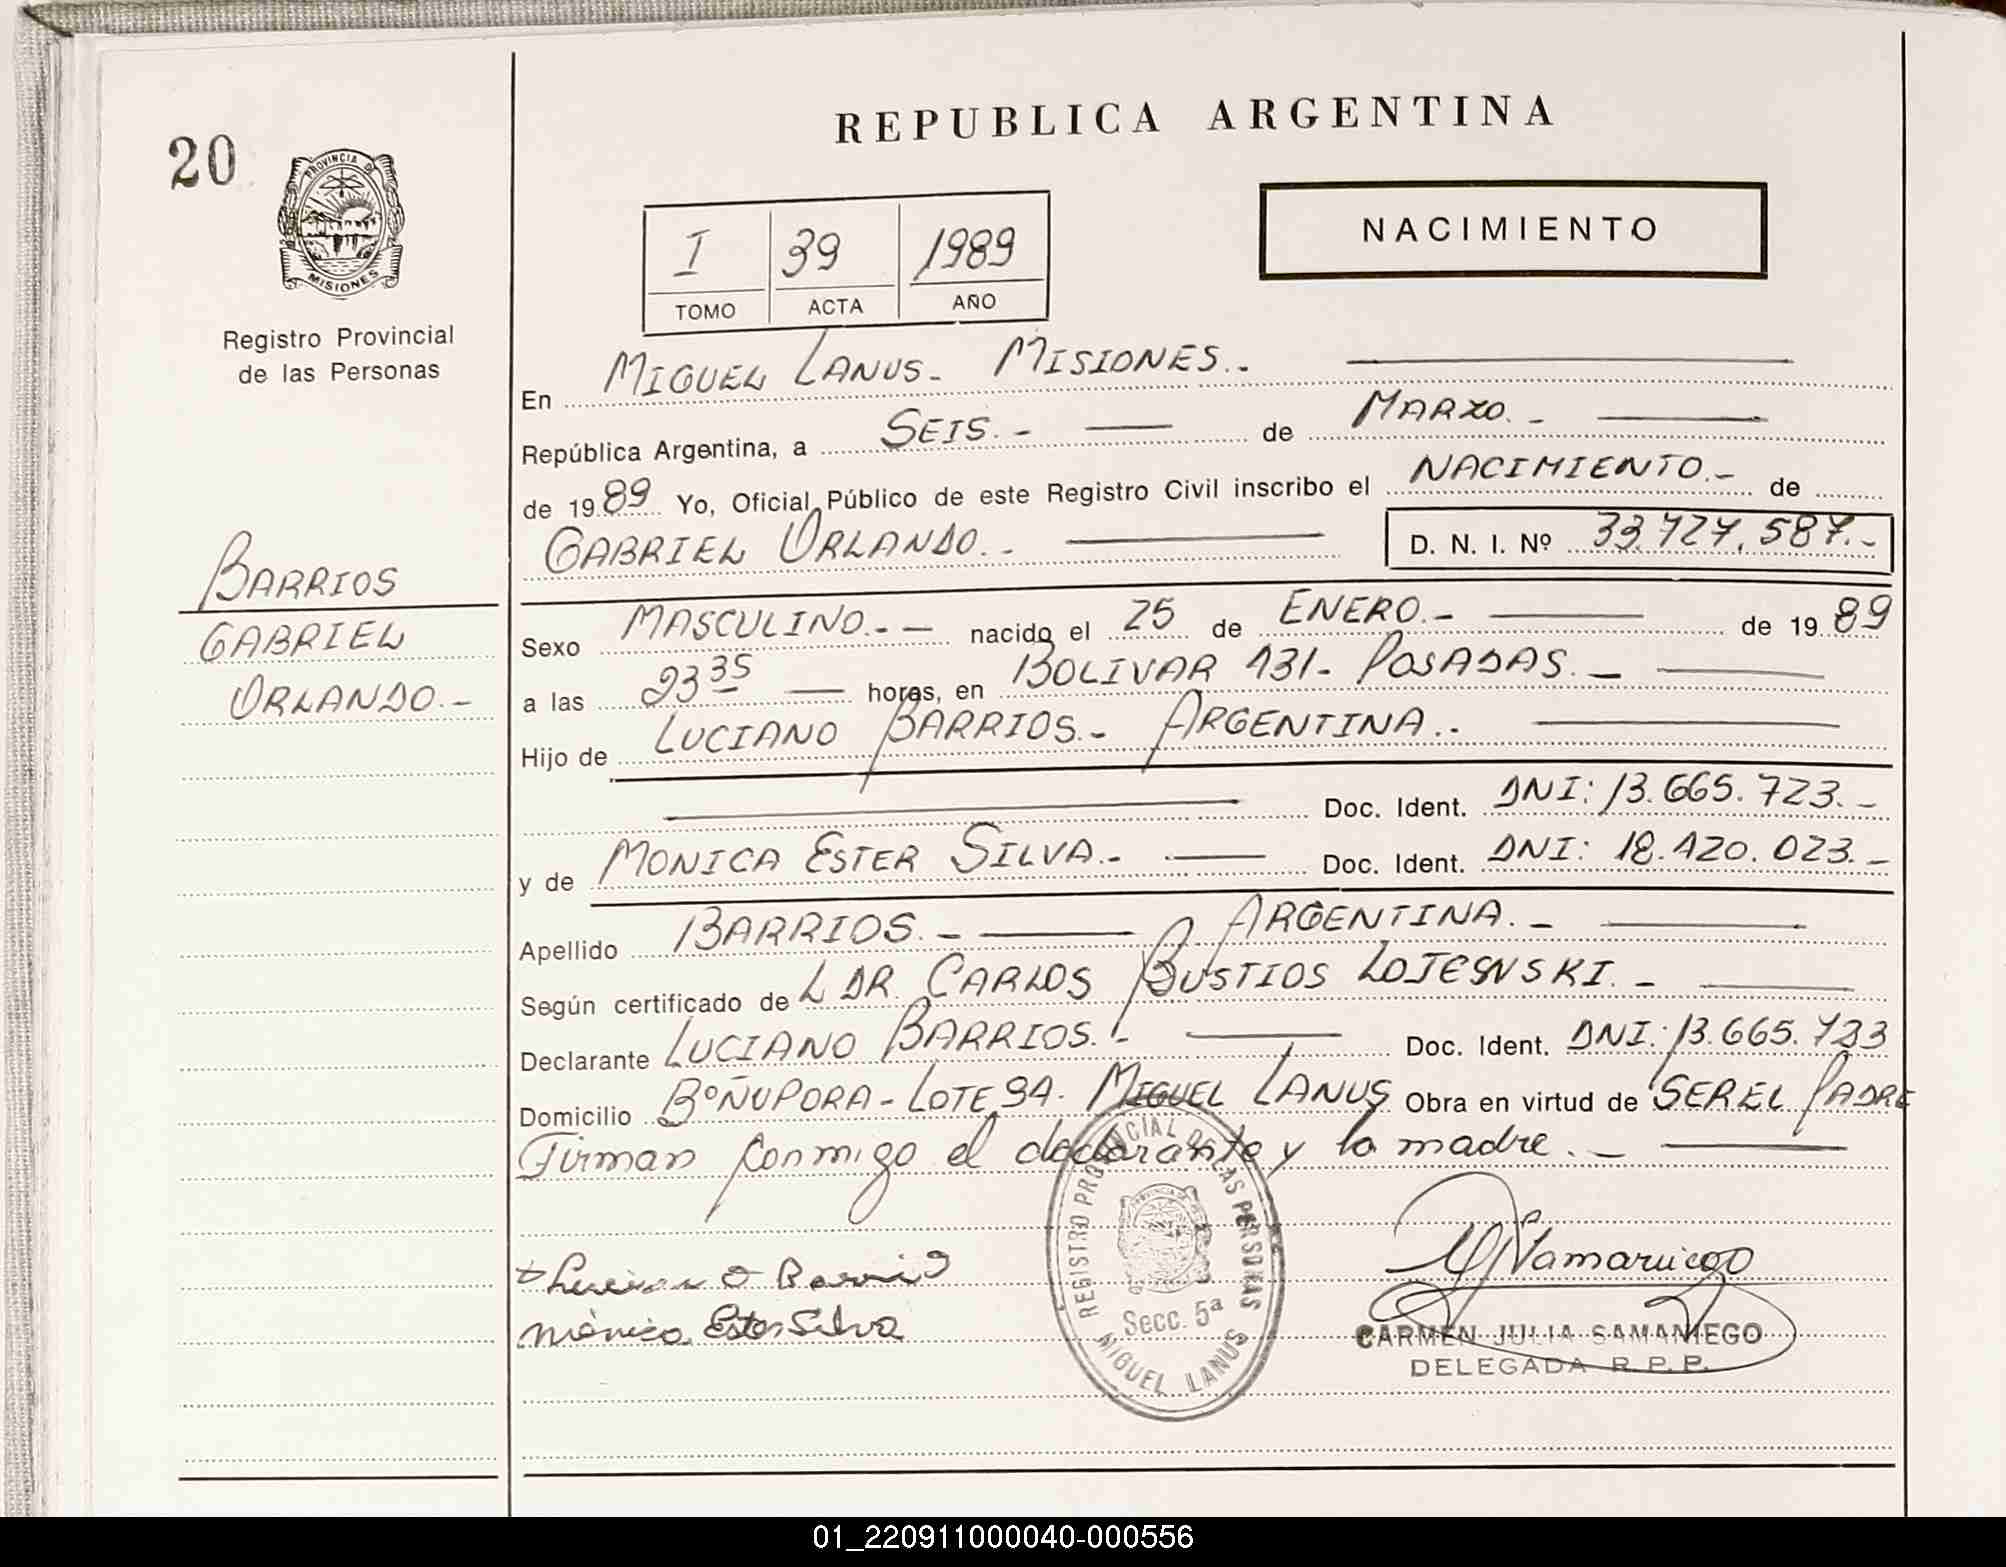 20
PROVINCIA DE
MISIONES
Registro Provincial
de las Personas
BARRIOS
GABRIEL
ORLANDO.-
REPUBLICA ARGENTINA
NACIMIENTO
I 39 1989
TOMO ACTA AÑO
En MIGUEL LANUS- MISIONES.-
República Argentina, a SEIS.- de MARZO.-
de 1989 Yo, Oficial Público de este Registro Civil inscribo el NACIMIENTO.- de
GABRIEL ORLANDO.- D. N. I. Nº 33.727.587.-
Sexo MASCULINO.-- nacido el 25 de ENERO.- de 1989
a las 23 35 horas, en BOLIVAR 131- POSADAS.-
Hijo de LUCIANO BARRIOS.- ARGENTINA.-
Doc. Ident. DNI: 13.665.723.-
y de MONICA ESTER SILVA.- Doc. Ident. DNI: 18.120.023.-
Apellido BARRIOS.- ARGENTINA.-
Según certificado de L DR CARLOS BUSTIOS
Declarante LUCIANO BARRIOS.- Doc. Ident. DNI: 13.665.723
Domicilio Bº ÑUPORA- LOTE 94. MIGUEL LANUS Obra en virtud de SER EL PADRE
Firman conmigo el declarante y la madre.-
Barrios
Mónica Ester Silva
REGISTRO PROVINCIAL DE LAS PERSONAS
Secc. 5ª
MIGUEL LANUS
CARMEN JULIA SAMANIEGO
DELEGADA R. P. P.
01_220911000040-000556